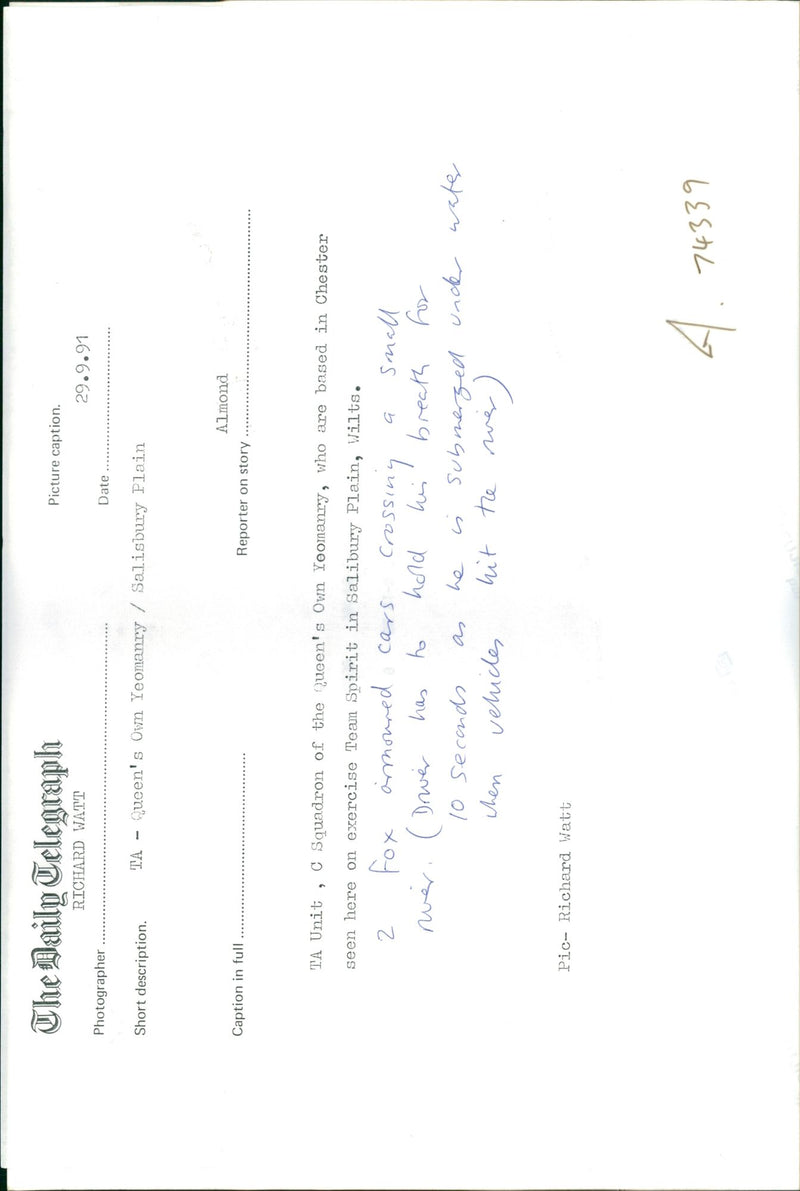 The Daily Telegraph
Picture caption.
RICHARD WATT
29.9.91
Photographer
Date
Short description.
TA - Queen's Own Yeomanry / Salisbury Plain
Almond
Caption in full
Reporter on story
TA Unit , C Squadron of the Queen's Own Yeomanry, who are based in Chester
seen here on exercise Team Spirit in Salibury Plain, Wilts.
2 Fox armoured cars crossing a small
river. (Driver has to hold his breath for
10 seconds as he is submerged under water
when vehicles hit the river)
Pic- Richard Watt
A. 74339